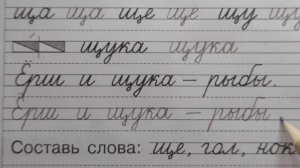 ща ща ще ще щу щу
щука щука
Ёрш и щука – рыбы.
Ёрш и щука – рыбы
Составь слова: ще, гол, нок,